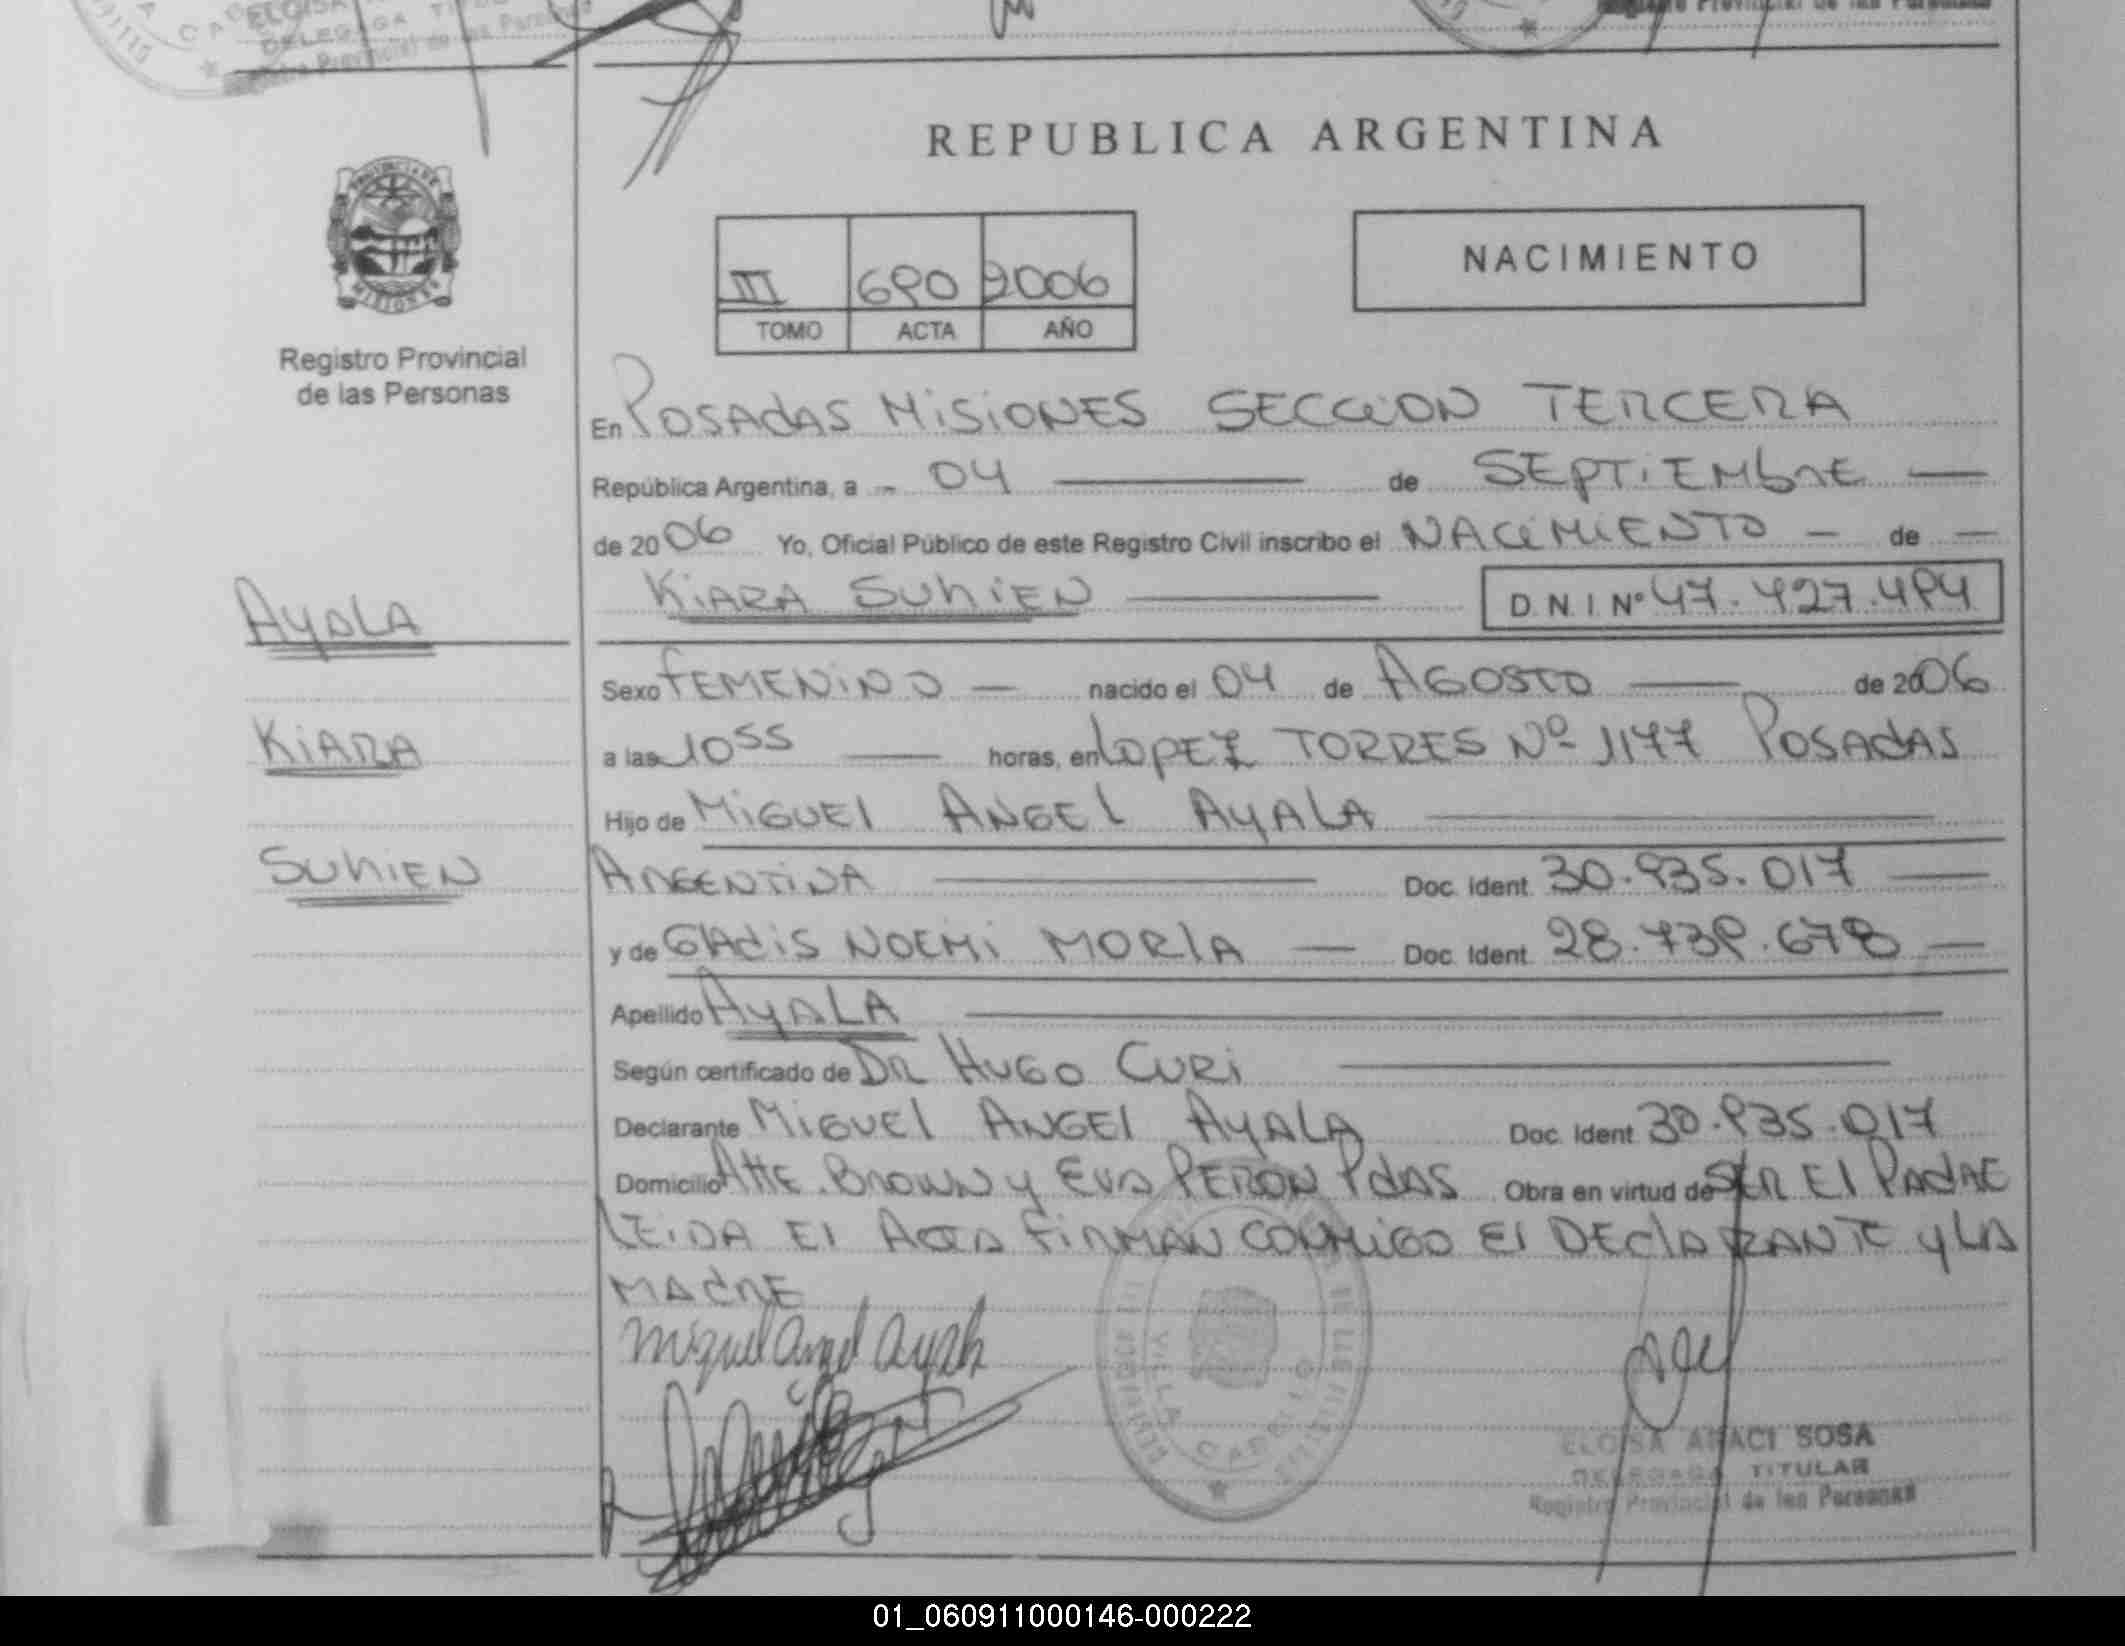 REPUBLICA ARGENTINA
NACIMIENTO
III 690 2006
TOMO ACTA AÑO
Registro Provincial
de las Personas
En POSADAS MISIONES SECCION TERCERA
República Argentina, a 04 de SEPTIEMBRE
de 2006 Yo, Oficial Público de este Registro Civil inscribo el NACIMIENTO de
KIARA SUHIEN D.N.I Nº 47.427.494
AYALA
KIARA
SUHIEN
Sexo FEMENINO nacido el 04 de AGOSTO de 2006
a las 10 55 horas, en LOPEZ TORRES Nº 1177 POSADAS
Hijo de MIGUEL ANGEL AYALA
ARGENTINA Doc. Ident. 30.935.017
y de GLADIS NOEMI MORLA Doc. Ident. 28.739.678
Apellido AYALA
Según certificado de DR HUGO CURI
Declarante MIGUEL ANGEL AYALA Doc. Ident. 30.935.017
Domicilio ALTE. BROWN y EVA PERON PDAS Obra en virtud de SER EL PADRE
LEIDA EL ACTA FIRMAN CONMIGO EL DECLARANTE y LA
MADRE
Miguel Angel Ayala
VILLA CABELLO
ELOISA ARACI SOSA
DELEGADA TITULAR
Registro Provincial de las Personas
01_060911000146-000222